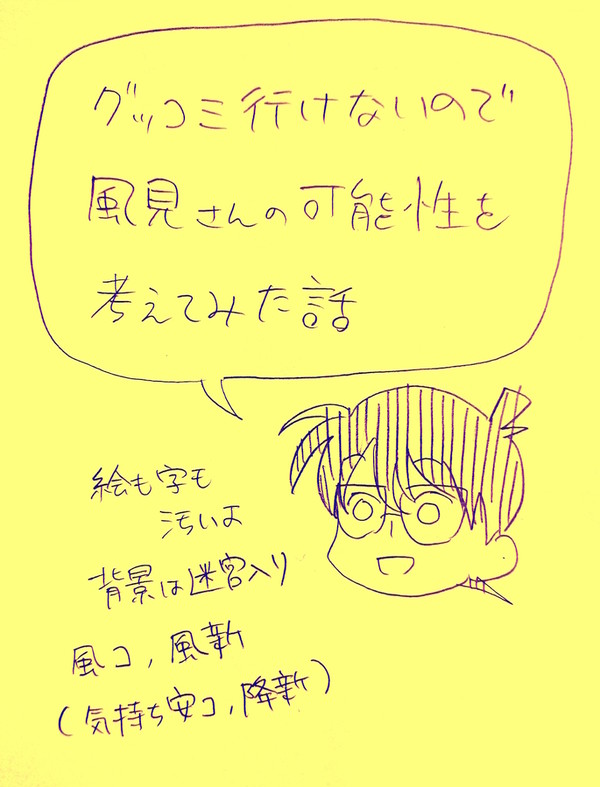 グッコミ行けないので
風見さんの可能性を
考えてみた話
絵も字も
汚いよ
背景は迷宮入り
風コ,風新
(気持ち安コ,降新)